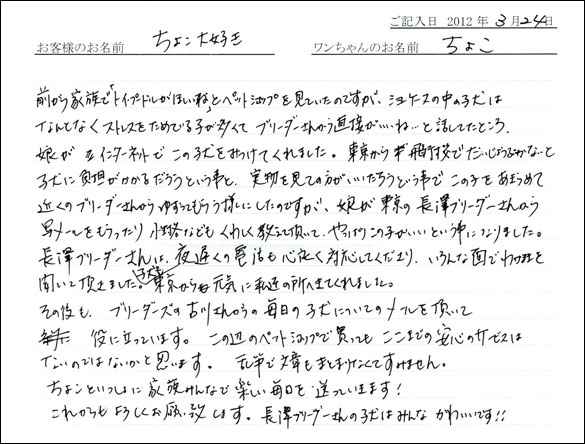 ご記入日 2012年 3月24日
お客様のお名前 ちょこ大好き ワンちゃんのお名前 ちょこ
前から家族で「トイプードルがほしいね」とペットショップを見ていたのですが、ショーケースの中の子犬は
なんとなくストレスをためてる子が多くて ブリーダーさんから直接がいいね…と話してたところ、
娘が インターネットで この子犬をみつけてくれました。東京から 飛行機でだいじょうぶかな…と
子犬に負担がかかるだろうという事と、実物を見ての方がいいだろうという事で この子をあきらめて
近くのブリーダーさんから ゆずってもらう様にしたのですが、娘が東京の長澤ブリーダーさんから
写メールをもらったり 性格なども くわしく教えて頂いて、やっぱりこの子がいい という事になりました。
長澤ブリーダーさんは、夜遅くの電話も心よく対応してくださり、いろんな面でわがままを
聞いて頂きました。東京からも元気に私達の所へ来てくれました。
その後も、ブリーダーズの古川さんからの毎日の子犬についてのメールを頂いて
役に立っています。この辺のペットショップで買っても ここまでの安心のサービスは
ないのではないかと思います。 乱筆で文章もまとまりなくてすみません。
ちょこといっしょに家族みんなで楽しい毎日を送っています!
これからもよろしくお願い致します。長澤ブリーダーさんの子犬はみんなかわいいです!!